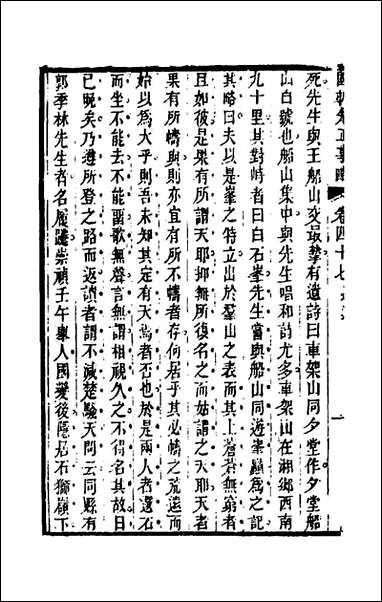 國朝先正事略 卷四十七
死先生與王船山交最摯有遺詩曰車架山同夕堂作夕堂船
山自號也船山集中與先生唱和詩尤多車架山在湘鄉西南
九十里其對峙者曰白石峯先生嘗與船山同遊峯巔爲之記
其略曰夫以是峯之特立出於羣山之表而其上蒼蒼無窮者
且如彼是果有所謂天耶抑無所復名之而姑謂之天耶天者
果有所幬與則亦宜有所不幬者存何居乎其必幬之荒遠而
始以爲大乎則吾未知其定有天焉者否也於是兩人者選石
而坐不能去不能罷歌無聲言無謂相視久之不得名其故日
已晚矣乃遵所登之路而返讀者謂不減楚騷天問云同縣有
郭季林先生者名履躚崇禎壬午舉人國變後隱居石獅嶺下